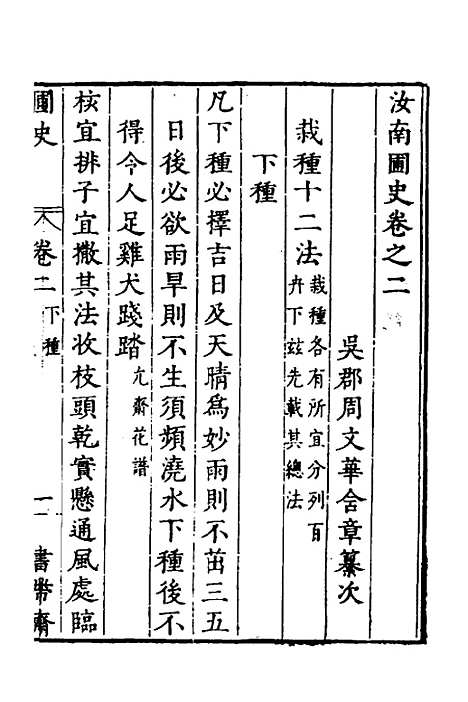 汝南圃史卷之二
吳郡周文華含章纂次
栽種十二法
栽種各有所宜分列百
卉下玆先載其總法
下種
凡下種必擇吉日及天晴爲妙雨則不茁三五
日後必欲雨旱則不生須頻澆水下種後不
得令人足雞犬踐踏
亢齋花譜
核宜排子宜撒其法收枝頭乾實懸通風處臨
圃史
卷二
下種
一
書帶齋